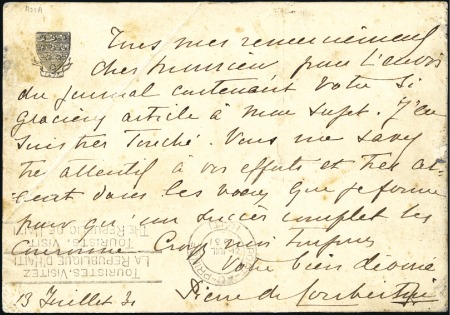 Tous mes remerciements
cher Monsieur pour l'envoi
du journal contenant votre si
gracieux article à mon sujet. J'en
suis très touché. Vous me savez
très attentif à vos efforts et très
dans les vœux que je forme
pour qu'un succès complet les
couronne. Croyez moi toujours
votre bien dévoué
13 Juillet 31 Pierre de Coubertin
TOURISTES-VISITEZ
LA REPUBLIQUE D'HAITI
TOURISTS, VISIT
THE REPUBLIC OF HAITI